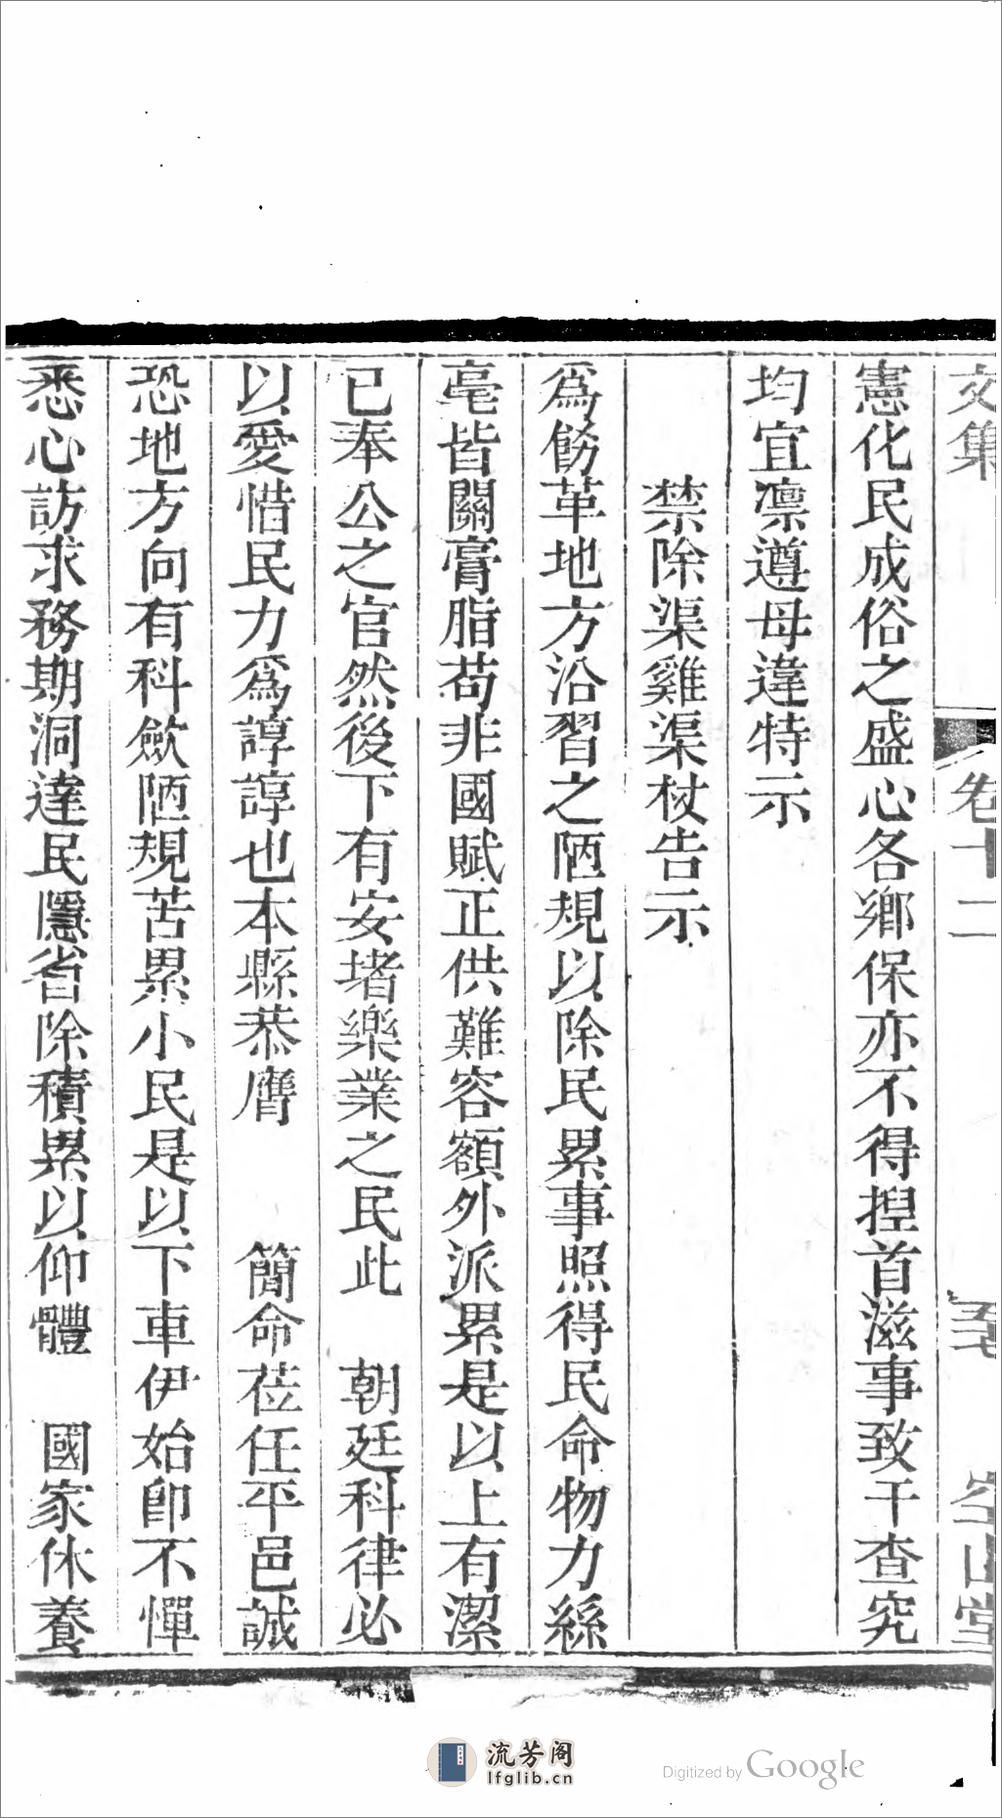 文集 卷十二 五七 空山堂
憲化民成俗之盛心各鄉保亦不得揑首滋事致干查究
均宜凛遵母違特示
禁除渠雞渠杖告示
爲飭革地方沿習之陋規以除民累事照得民命物力絲
毫皆關膏脂苟非國賦正供難容額外派累是以上有潔
已奉公之官然後下有安堵樂業之民此 朝廷科律必
以愛惜民力爲諄諄也本縣恭膺 簡命莅任平邑誠
恐地方向有科歛陋規苦累小民是以下車伊始卽不憚
悉心訪求務期洞達民隱省除積累以仰體 國家休養
流芳阁
lfglib.cn
Digitized by Google